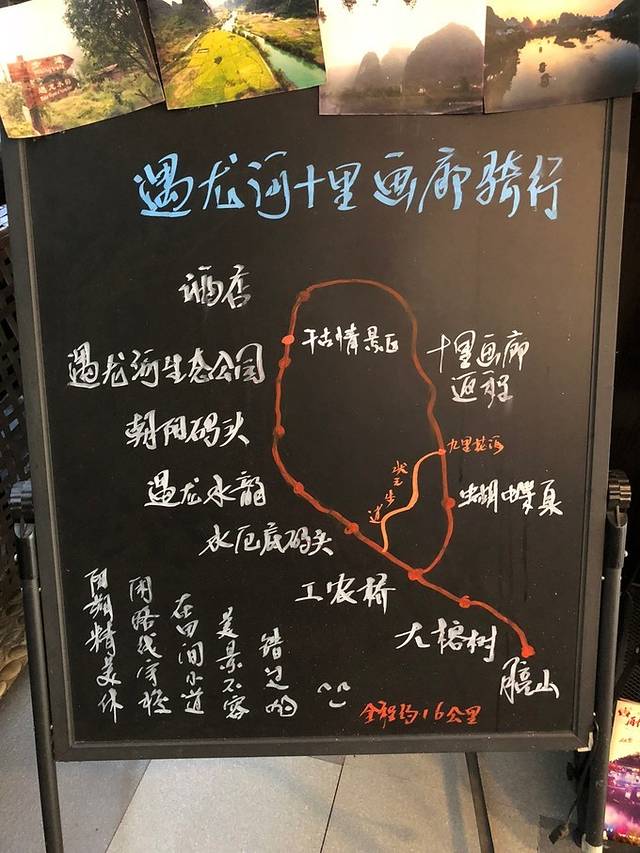 遇龙河十里画廊骑行
酒店
千古情景区
遇龙河生态公园
十里画廊
返程
朝阳码头
九里花海
状元步道
遇龙水龍
蝴蝶泉
水厄底码头
工农桥
大榕树
月亮山
阳朔精美休
闲路线穿梭
在田间小道
美景不容
错过哟
全程约16公里